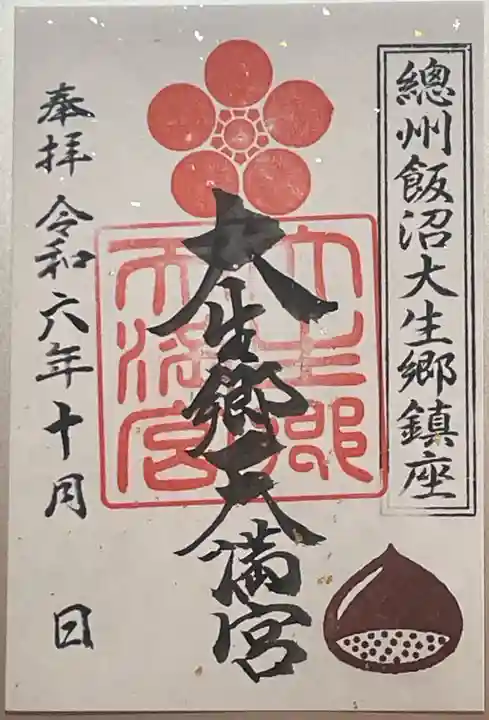 總州飯沼大生郷鎮座
大生郷天満宮
大生郷天満宮
奉拝 令和六年十月 日